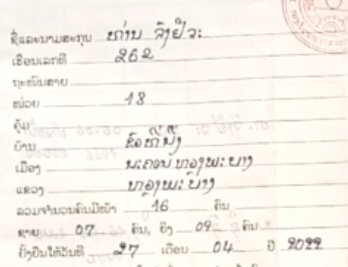 ຊື່ແລະນາມສະກຸນ ທ່ານ
ເຮືອນເລກທີ 262
ຖະໜົນສາຍ
ໜ່ວຍ 18
ຄຸ້ມ
ບ້ານ
ເມືອງ ນະຄອນ ຫລວງພະບາງ
ແຂວງ ຫລວງພະບາງ
ລວມຈຳນວນຄົນມີໜ້າ 16 ຄົນ
ຊາຍ 07 ຄົນ, ຍິງ 09 ຄົນ
ຢັ້ງຢືນໃຫ້ວັນທີ 27 ເດືອນ 04 ປີ 2022